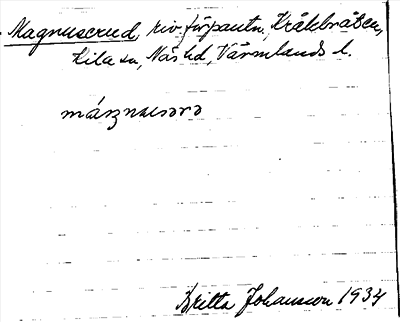 Magnuserud, riv. förpantn., Kråkbråten,
Kila sn, Näs hd, Värmlands l.
Britta Johansson 1934